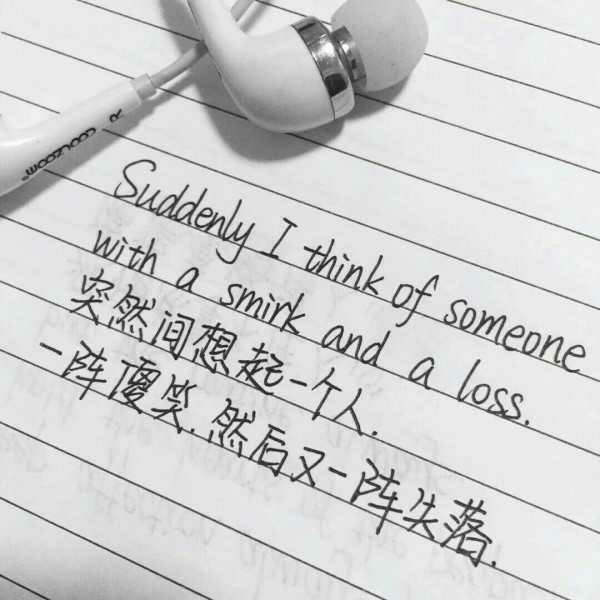 COOLZOOM
R
Suddenly I think of someone
with a smirk and a loss.
突然间想起一个人.
一阵傻笑.然后又一阵失落.